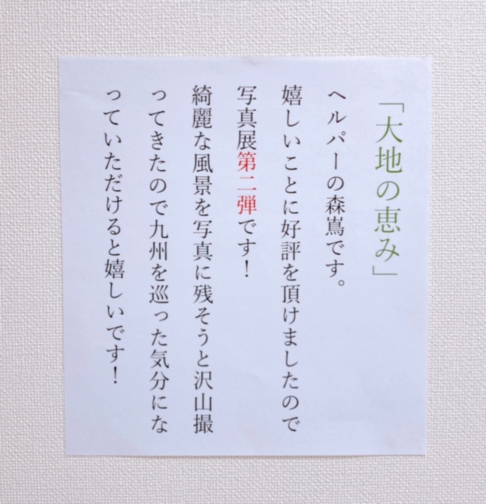 「大地の恵み」
ヘルパーの森嶌です。
嬉しいことに好評を頂けましたので
写真展第二弾です！
綺麗な風景を写真に残そうと沢山撮
ってきたので九州を巡った気分にな
っていただけると嬉しいです！